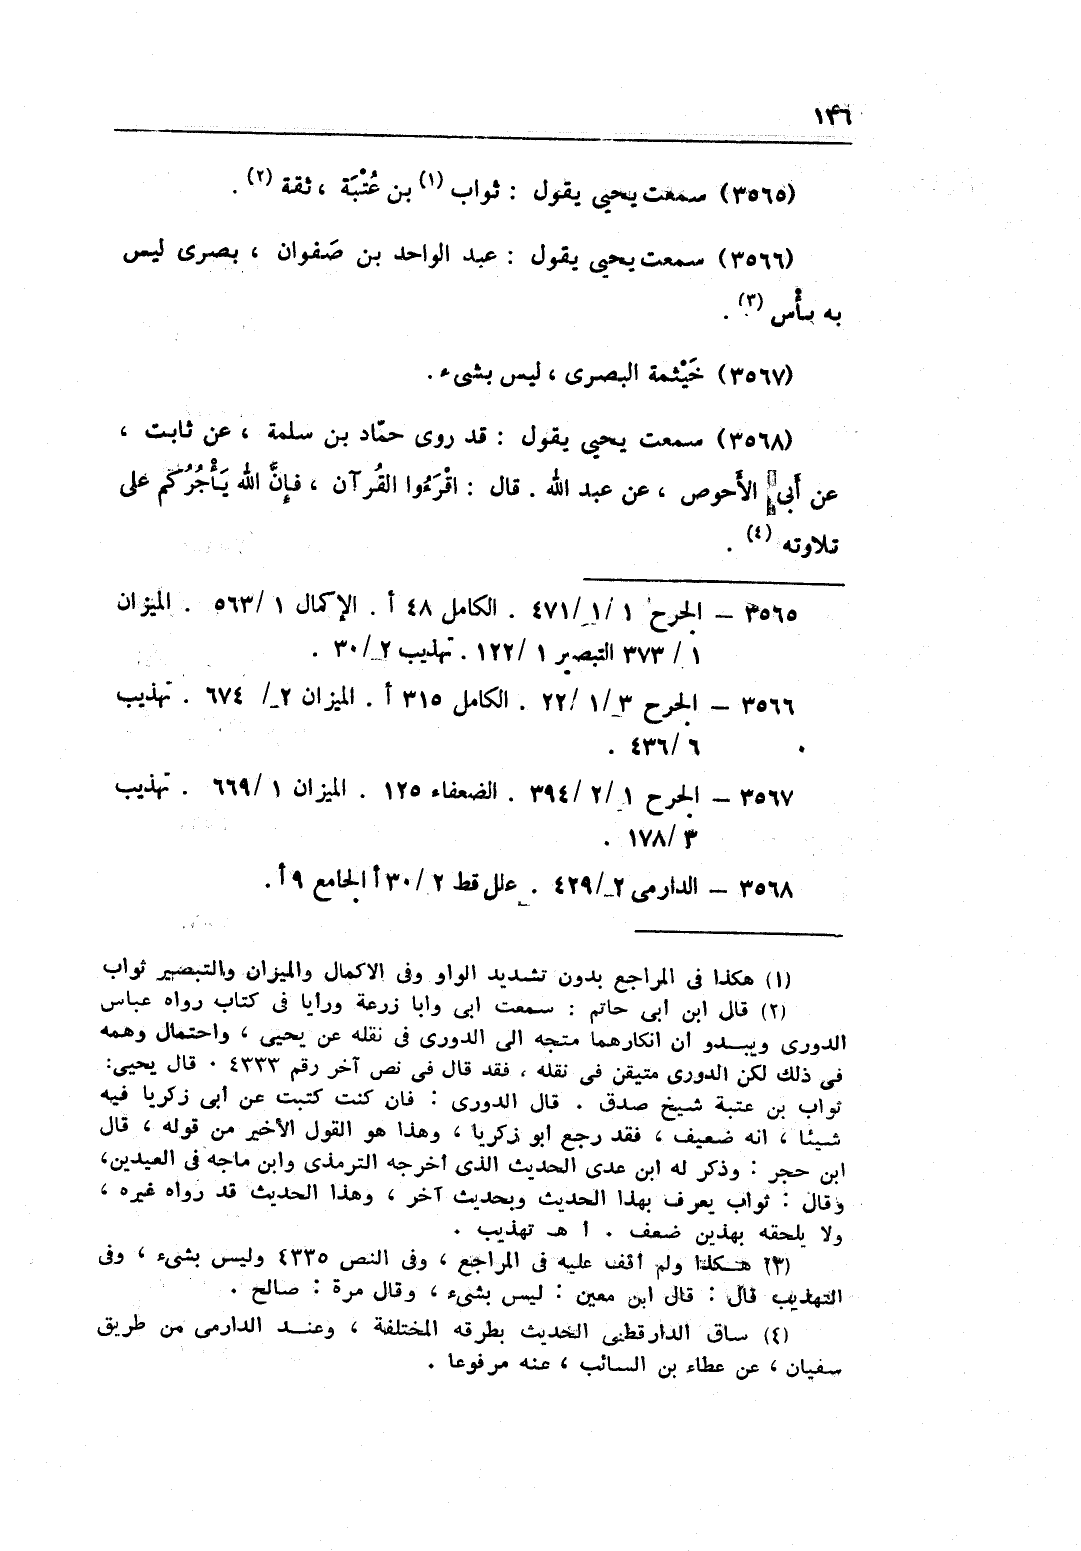 ١٤٦
(٣٥٦٥) سمعت يحيى يقول : ثواب (١) بن عُتْبَة ، ثقة (٢) .
(٣٥٦٦) سمعت يحيى يقول : عبد الواحد بن صَفوان ، بصرى ليس
به بأْس (٣) .
(٣٥٦٧) خَيْثمة البصرى ، ليس بشىء .
(٣٥٦٨) سمعت يحيى يقول : قد روى حمّاد بن سلمة ، عن ثابت ،
عن أَبى الأَحوص ، عن عبد الله . قال : اقْرَءُوا القُرآن ، فإِنَّ الله يَأْجُرُكم على
تلاوته (٤) .
٣٥٦٥ – الجرح ١ /١/ ٤٧١ . الكامل ٤٨ أ . الإكمال ١ /٥٦٣ . الميزان
١ / ٣٧٣ التبصير ١ /١٢٢ . تهذيب ٢ /٣٠ .
٣٥٦٦ – الجرح ٣ /١ /٢٢ . الكامل ٣١٥ أ . الميزان ٢ / ٦٧٤ . تهذيب
٦ /٤٣٦ .
٣٥٦٧ – الجرح ١ /٢ /٣٩٤ . الضعفاء ١٢٥ . الميزان ١ /٦٦٩ . تهذيب
٣ /١٧٨ .
٣٥٦٨ – الدارمى ٢ /٤٢٩ . علل قط ٢ /٣٠ أ الجامع ٩ أ .
(١) هكذا فى المراجع بدون تشديد الواو وفى الاكمال والميزان والتبصير ثواب
(٢) قال ابن أبى حاتم : سمعت ابى وابا زرعة ورأيا فى كتاب رواه عباس
الدورى ويبـدو ان انكارهما متجه الى الدورى فى نقله عن يحيى ، واحتمال وهمه
فى ذلك لكن الدورى متيقن فى نقله ، فقد قال فى نص آخر رقم ٤٣٣٣ . قال يحيى:
ثواب بن عتبة شيخ صدق . قال الدورى : فان كنت كتبت عن أبى زكريا فيه
شيئا ، انه ضعيف ، فقد رجع أبو زكريا ، وهذا هو القول الأخير من قوله ، قال
ابن حجر : وذكر له ابن عدى الحديث الذى أخرجه الترمذى وابن ماجه فى العيدين،
وقال : ثواب يعرف بهذا الحديث وبحديث آخر ، وهذا الحديث قد رواه غيره ،
ولا يلحقه بهذين ضعف . أ هـ تهذيب .
(٣) هـكذا ولم أقف عليه فى المراجع ، وفى النص ٤٣٣٥ وليس بشىء ، وفى
التهذيب قال : قال ابن معين : ليس بشىء ، وقال مرة : صالح .
(٤) ساق الدارقطنى الحديث بطرقه المختلفة ، وعنـد الدارمى من طريق
سفيان ، عن عطاء بن السائب ، عنه مرفوعا .